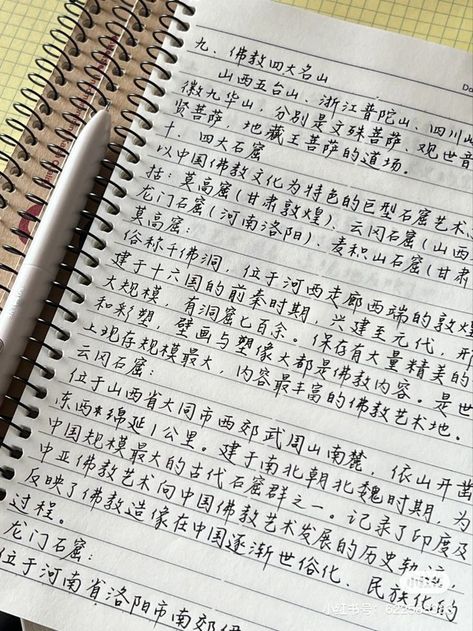 九、佛教四大名山
山西五台山、浙江普陀山、四川
徽九华山，分别是文殊菩萨、观世音
贤菩萨，地藏王菩萨的道场。
十、四大石窟
以中国佛教文化为特色的巨型石窟艺术
括：莫高窟(甘肃敦煌)、云冈石窟(山西
龙门石窟(河南洛阳)、麦积山石窟(甘肃
莫高窟：
俗称千佛洞，位于河西走廊西端的敦煌
建于十六国的前秦时期，兴建至元代，开
大规模，有洞窟七百余。保存有大量精美的
和彩塑，壁画与塑像大都是佛教内容。是世
上现存规模最大，内容最丰富的佛教艺术地。
云冈石窟：
位于山西省大同市西郊武周山南麓，依山开凿
东西绵延1公里。建于南北朝北魏时期，为
中国规模最大的古代石窟群之一。记录了印度及
中亚佛教艺术向中国佛教艺术发展的历史轨
反映了佛教造像在中国逐渐世俗化、民族化的
过程。
龙门石窟：
位于河南省洛阳市南郊伊
小红书
小红书号：